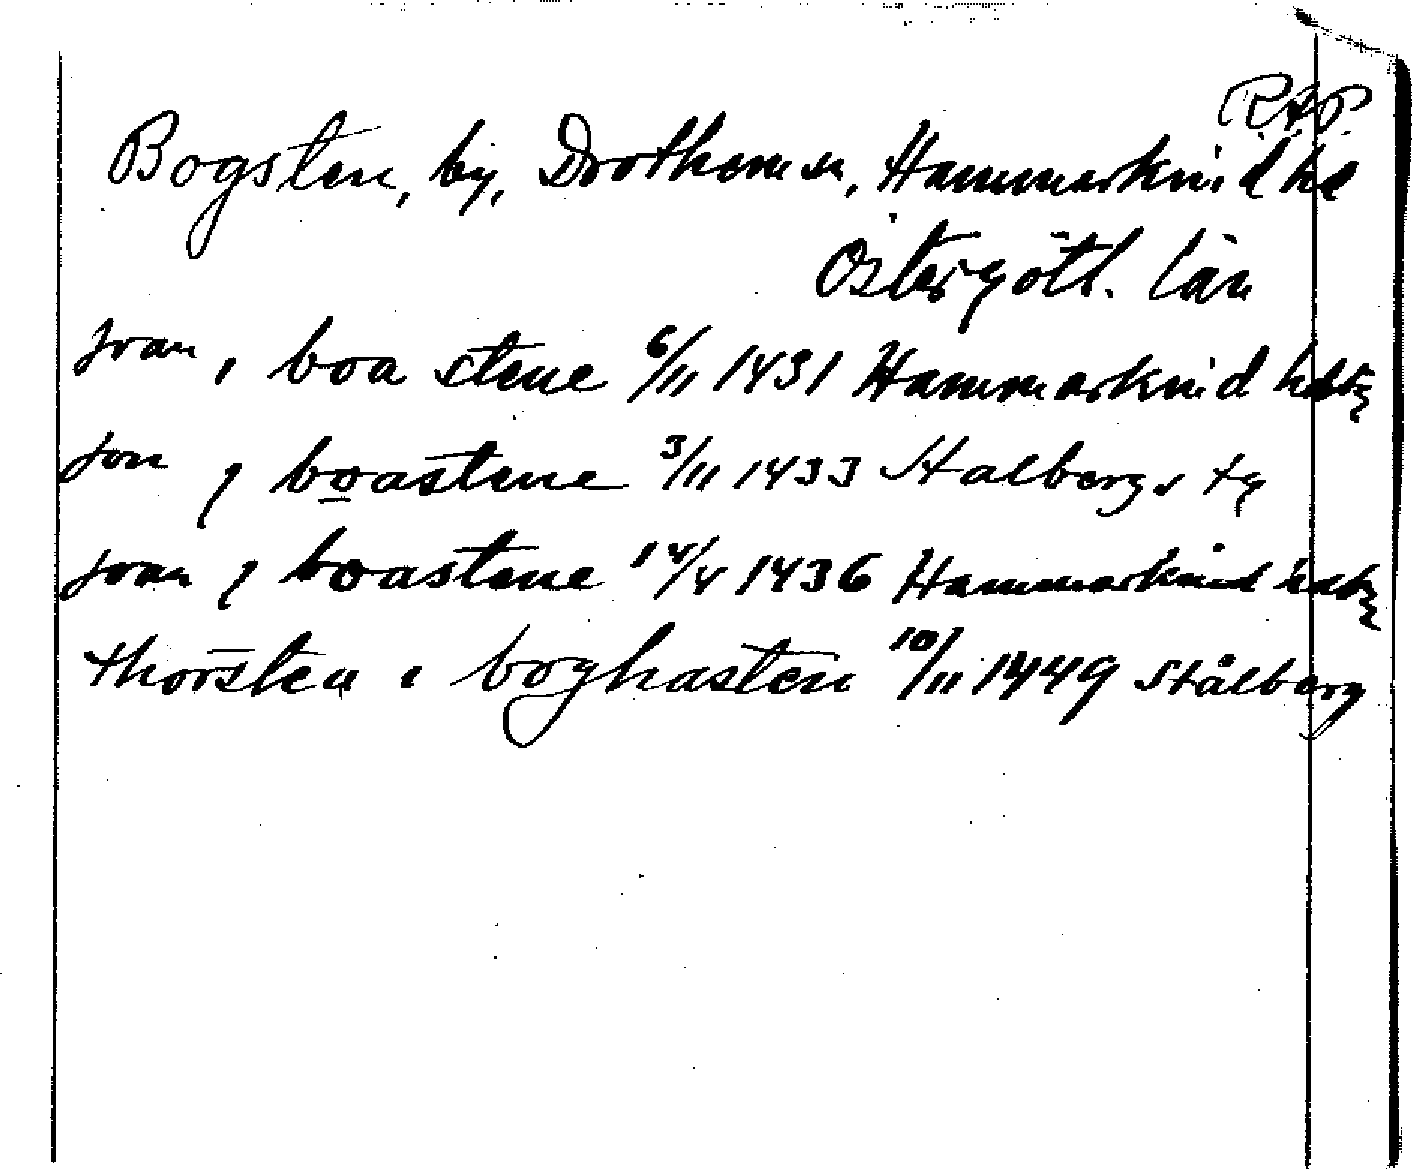 RAP
Bogsten, by, Drothems sn, Hammarkind hd
Östergötl. län
jvan, i boa stene 6/11 1431 Hammarkind hdstg
jon j boastene 3/11 1433 Stalbergs tg
jvan j boastene 14/4 1436 Hammarkind hdstg
thorsten i boghasten 10/11 1449 Stålberg